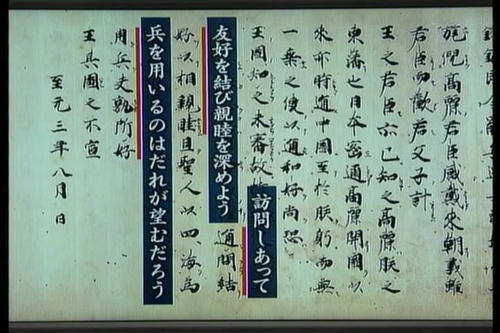 旄倪高麗君臣感戴来朝義雖
君臣而歡若父子計
王之君臣亦已知之高麗朕之
東藩也日本密邇高麗開國以
来亦時通中國至於朕躬而無
一乗之使以通和好尚恐
王國知之未審故
訪問しあって
通問結
友好を結び親睦を深めよう
好以相親睦且聖人以四海為
兵を用いるのはだれが望むだろう
用兵夫孰所好
王其圖之不宣
至元三年八月 日